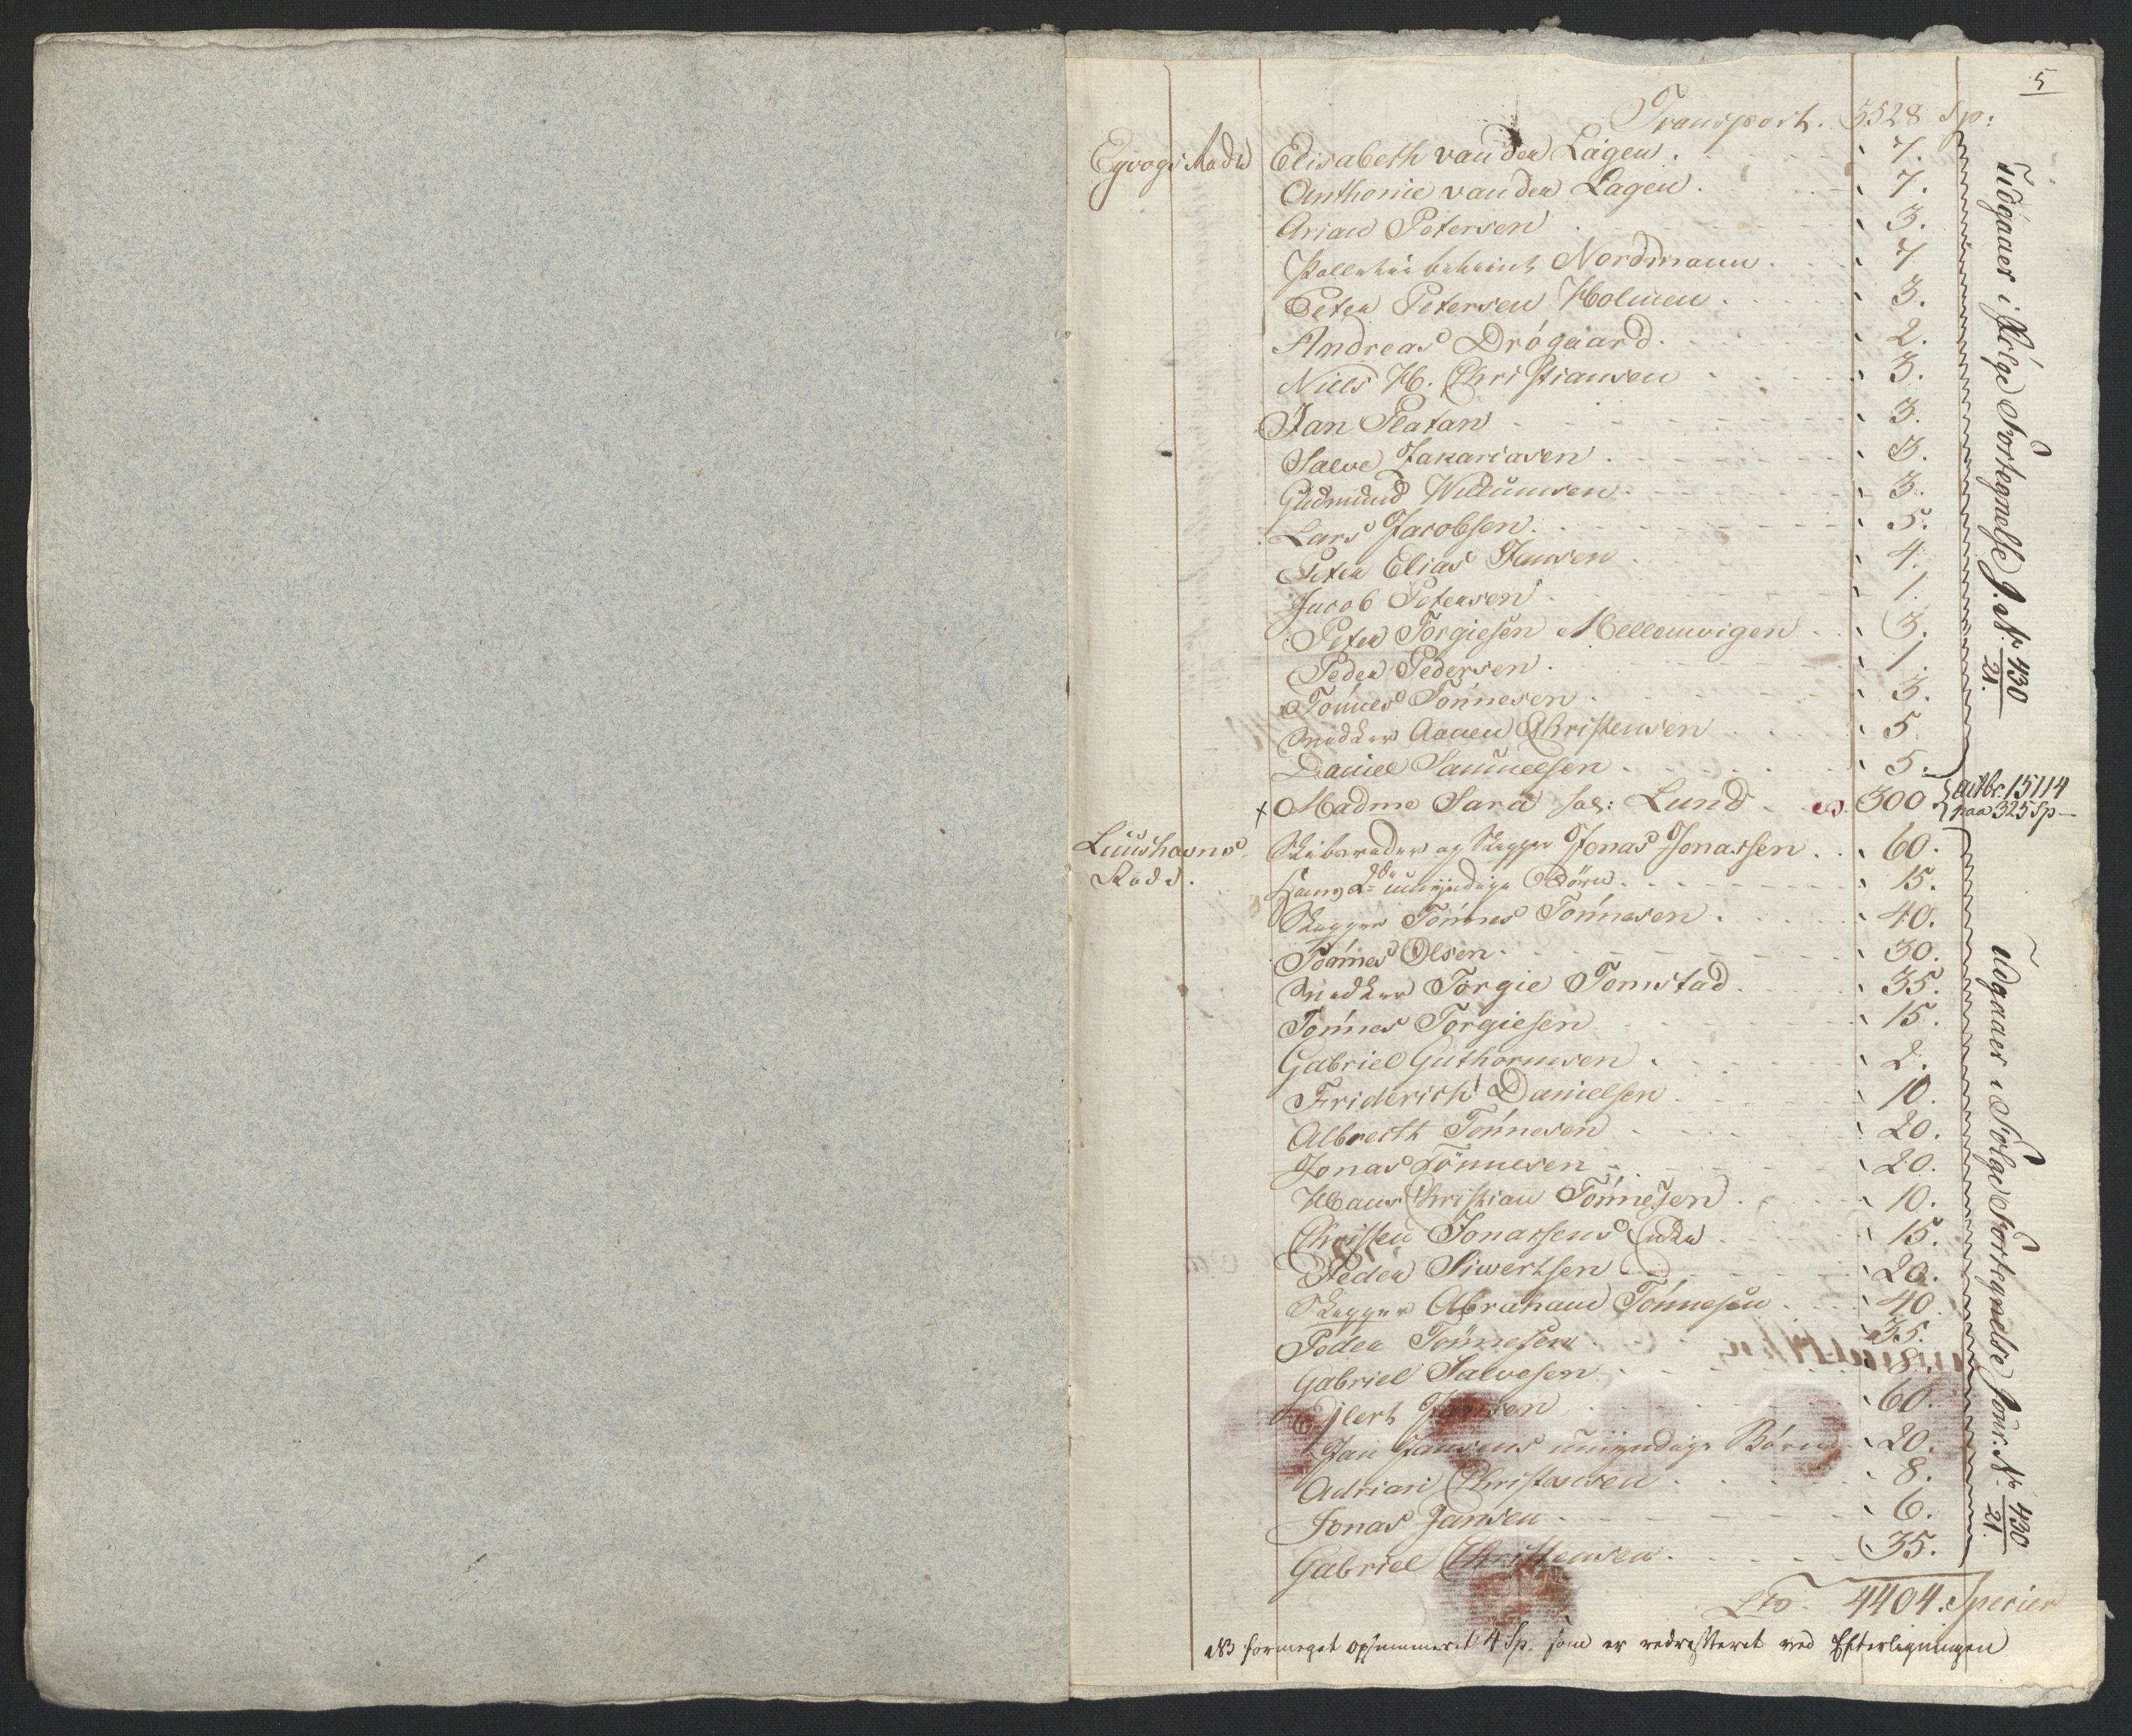 5
Transport. 3528 Sp:
Egvogs Rodd Elisabeth van der Lagen. 7.
Anthonie van der Lagen. 7.
Arian Petersen 3.
Nordmann 7
Peter Petersen Holmen 3.
Andreas Drögaard. 2.
Niels H. Christiansen 3.
Jan Platan 3.
Salve Zakariasen 3.
Gudmund Willumsen 3.
Lars Jacobsen. 5.
Peter Elias Jansen 4.
Jacob Petersen 1.
Peter Torgiesen Mellemvigen 3.
Peder Pedersen. 1.
Tönnes Tönnesen 3.
Snedker Aanen Christensen 5
Daniel Samuelsen 5.
Tidgaaer i Fölge Fortegnelse J. No 430/21.
x Madme Sara sal: Lund 300 { aitbr. 15114
paa 325 Sp
Luushavns Rode. Skibsreder og Skipper Jonas Jonassen 60.
Hans 2de umyndige Börn. 15.
Skipper Tönnes Tönnesen 40.
Tönnes Olsen. 30.
Snedker Torgie Tomstad. 35.
Tönnes Torgiesen 15.
Gabriel Guthormsen 2.
Friderich Danielsen 10.
Albrecth Tönnesen 20.
Jonas Tönnesen 20.
Hans Christian Tönnesen 10.
Christen Jonassens Enke 15.
Peder Siwertsen 20.
Skipper Abraham Tönnesen 40
Peder Tönnesen 35.
Gabriel Salvesen 8.
Eilert Jansen 60.
Jan Jansens umyndige Börn 20.
Adrian Christensen 8.
Jonas Jansen 6.
Gabriel Christensen. 35.
Udgaaer i Fölge Fortegnelse Jour. No 430/21.
Lto 4404 Specier
NB formeget opsummeret 4 Sp. som er redresseret ved Efterligningen